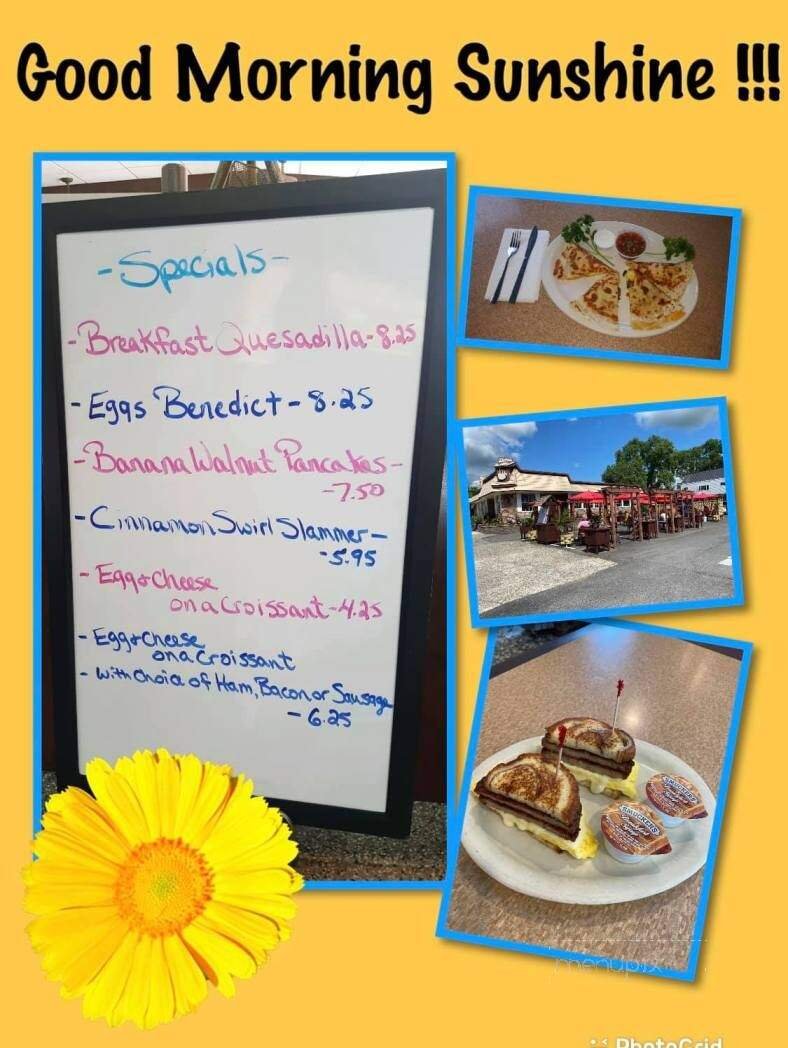 Good Morning Sunshine !!!
- Specials -
- Breakfast Quesadilla - 8.25
- Eggs Benedict - 8.25
- Banana Walnut Pancakes -
- 7.50
- Cinnamon Swirl Slammer -
- 5.95
- Egg & Cheese
on a Croissant - 4.25
- Egg & Cheese
on a Croissant
- with choice of Ham, Bacon or Sausage
- 6.25
SMUCKER'S
menupix
PhotoGrid